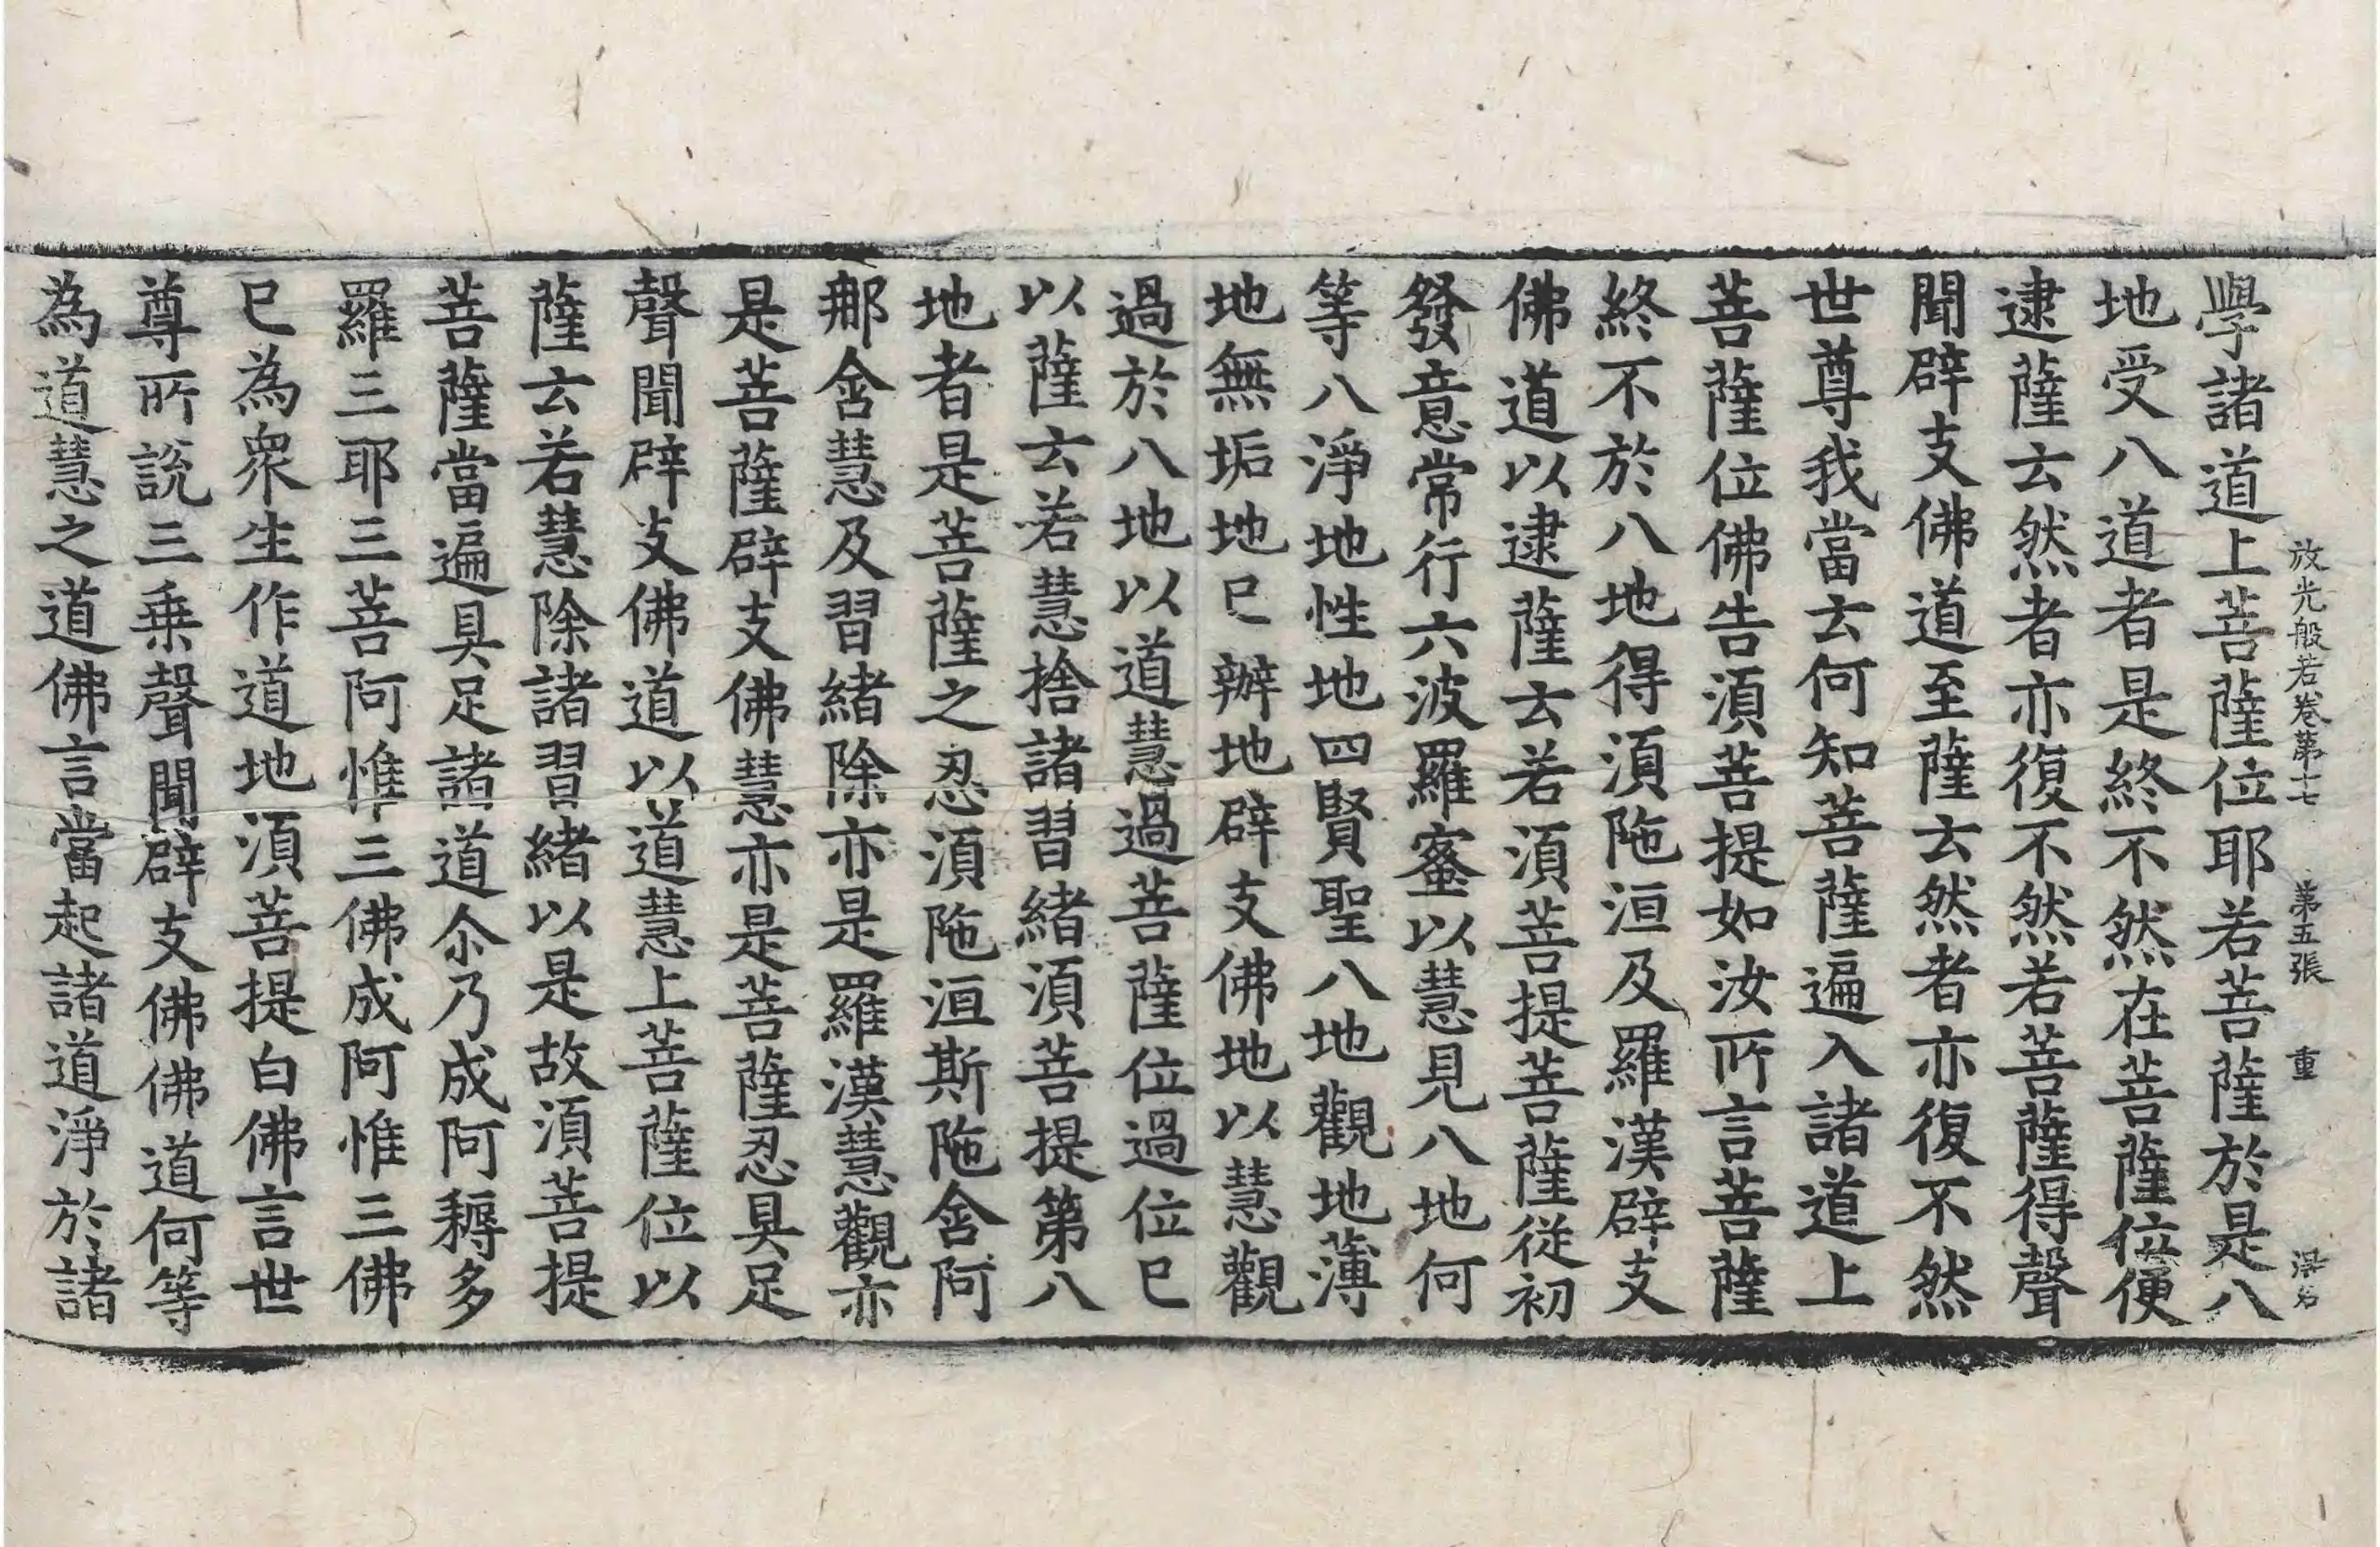 放光般若卷第十七 第五張 重
學諸道上菩薩位耶若菩薩於是八
地受八道者是終不然在菩薩位便
逮薩云然者亦復不然若菩薩得聲
聞辟支佛道至薩云然者亦復不然
世尊我當云何知菩薩遍入諸道上
菩薩位佛告湏菩提如汝所言菩薩
終不於八地得湏陁洹及羅漢辟支
佛道以逮薩云若湏菩提菩薩從初
發意常行六波羅蜜以慧見八地何
等八淨地性地四賢聖八地觀地薄
地無垢地已辦地辟支佛地以慧觀
過於八地以道慧過菩薩位過位已
以薩云若慧捨諸習緒湏菩提第八
地者是菩薩之忍湏陁洹斯陁含阿
那含慧及習緒除亦是羅漢慧觀亦
是菩薩辟支佛慧亦是菩薩忍具足
聲聞辟支佛道以道慧上菩薩位以
薩云若慧除諸習緒以是故湏菩提
菩薩當遍具足諸道尒乃成阿耨多
羅三耶三菩阿惟三佛成阿惟三佛
已為衆生作道地湏菩提白佛言世
尊所說三乗聲聞辟支佛佛道何等
為道慧之道佛言當起諸道淨於諸